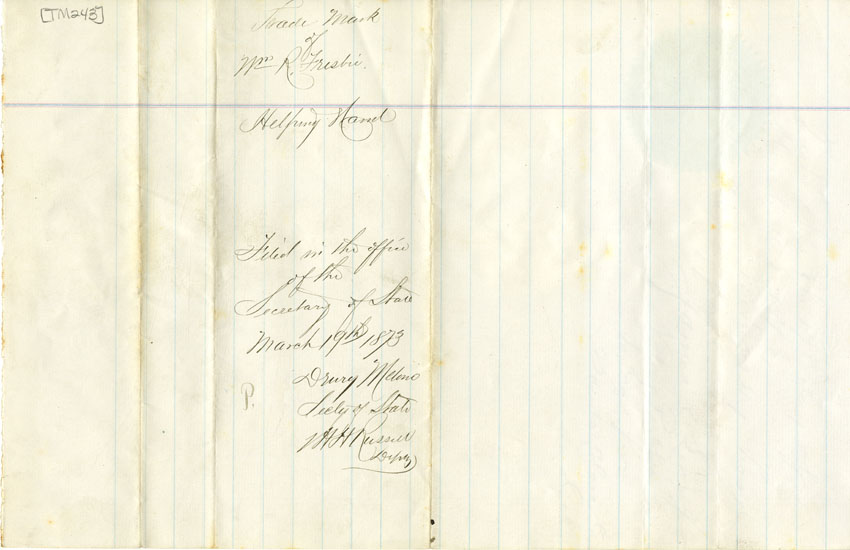 [TM243]
Trade Mark
of
Wm R. Frisbie.
Helping Hand
Filed in the office
of the
Secretary of State
March 19th 1873
Drury Melone
Secty of State
WHH Russell
Depy
P.